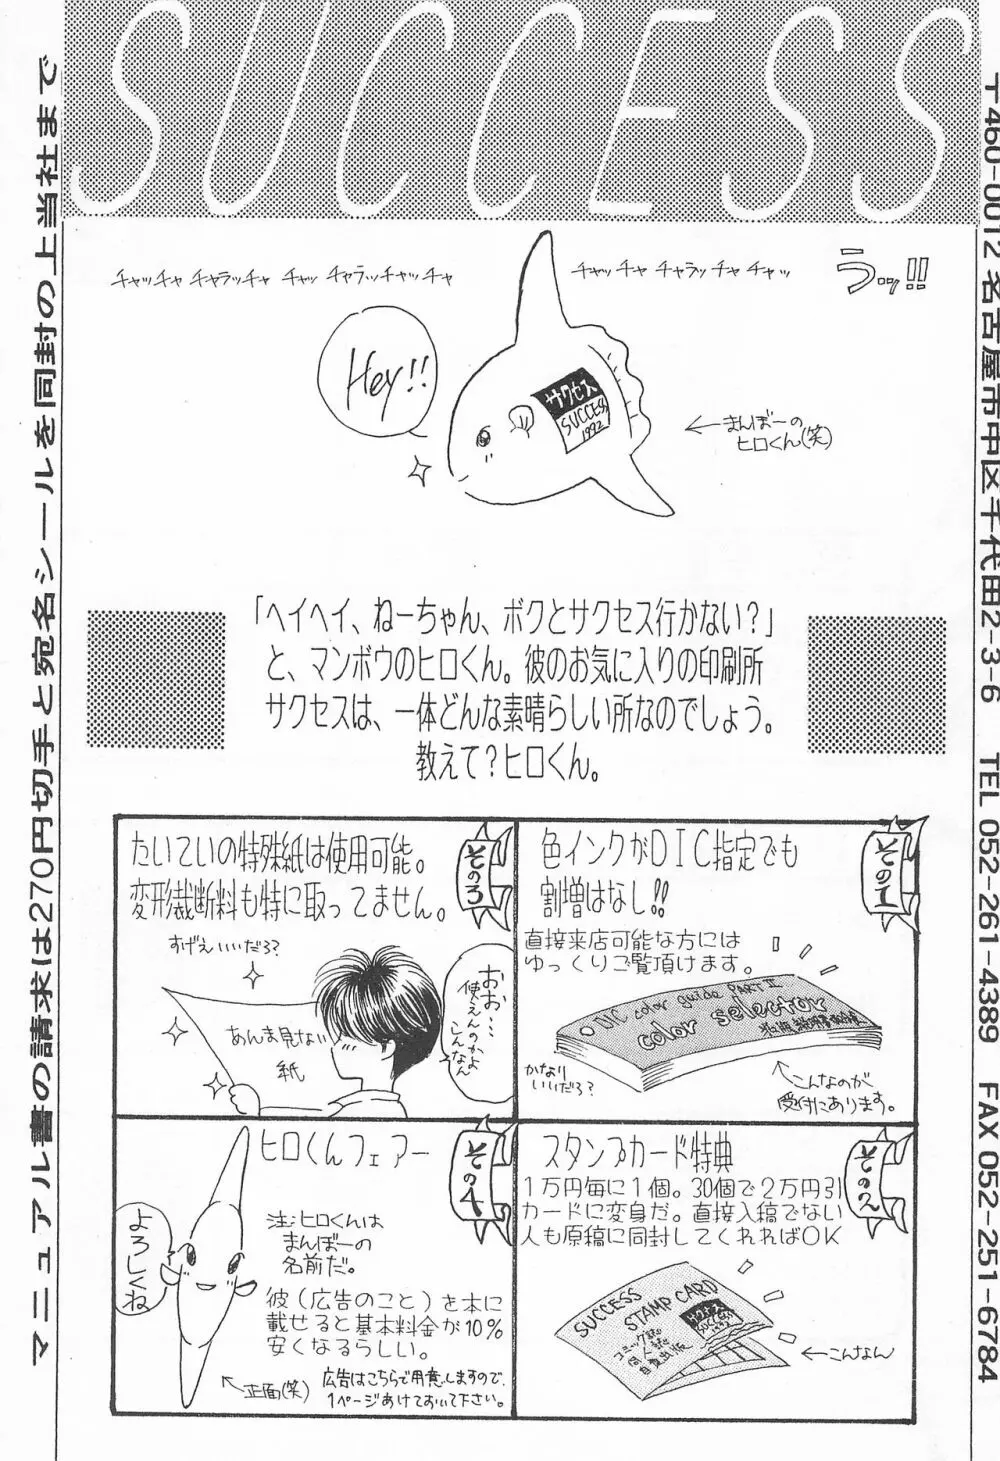 SUCCESS
〒460-0012 名古屋市中区千代田2-3-6 TEL 052-261-4389 FAX 052-251-6784
うッ!!
チャッチャ チャラッ チャ チャッ
チャッチャ チャラッチャ チャッ チャラッチャッチャ
Hey!!
サクセス
SUCCESS
1992
←まんぼーの
ヒロくん(笑)
「ヘイヘイ、ねーちゃん、ボクとサクセス行かない？」
と、マンボウのヒロくん。彼のお気に入りの印刷所
サクセスは、一体どんな素晴らしい所なのでしょう。
教えて？ヒロくん。
その1
色インクがDIC指定でも
割増はなし!!
直接来店可能な方には
ゆっくりご覧頂けます。
DIC color guide PART II
color selector
かなり
いいだろ?
こんなのが
受付にあります。
その2
スタンプカード特典
1万円毎に1個。30個で2万円引
カードに変身だ。直接入稿でない
人も原稿に同封してくれればOK
SUCCESS
STAMP CARD
コミック誌
同人誌
自費出版
サクセス
SUCCESS
1992
←こんなん
その3
たいていの特殊紙は使用可能。
変形裁断料も特に取ってません。
すげえいいだろ?
おお…
使えんのかよ
こんなん
あんま見ない
紙
その4
ヒロくんフェアー
よろしくね
注:ヒロくんは
まんぼーの
名前だ。
彼(広告のこと)を本に
載せると基本料金が10%
安くなるらしい。
←正面(笑)
広告はこちらで用意しますので、
1ページあけておいて下さい。
マニュアル書の請求は270円切手と宛名シールを同封の上当社まで